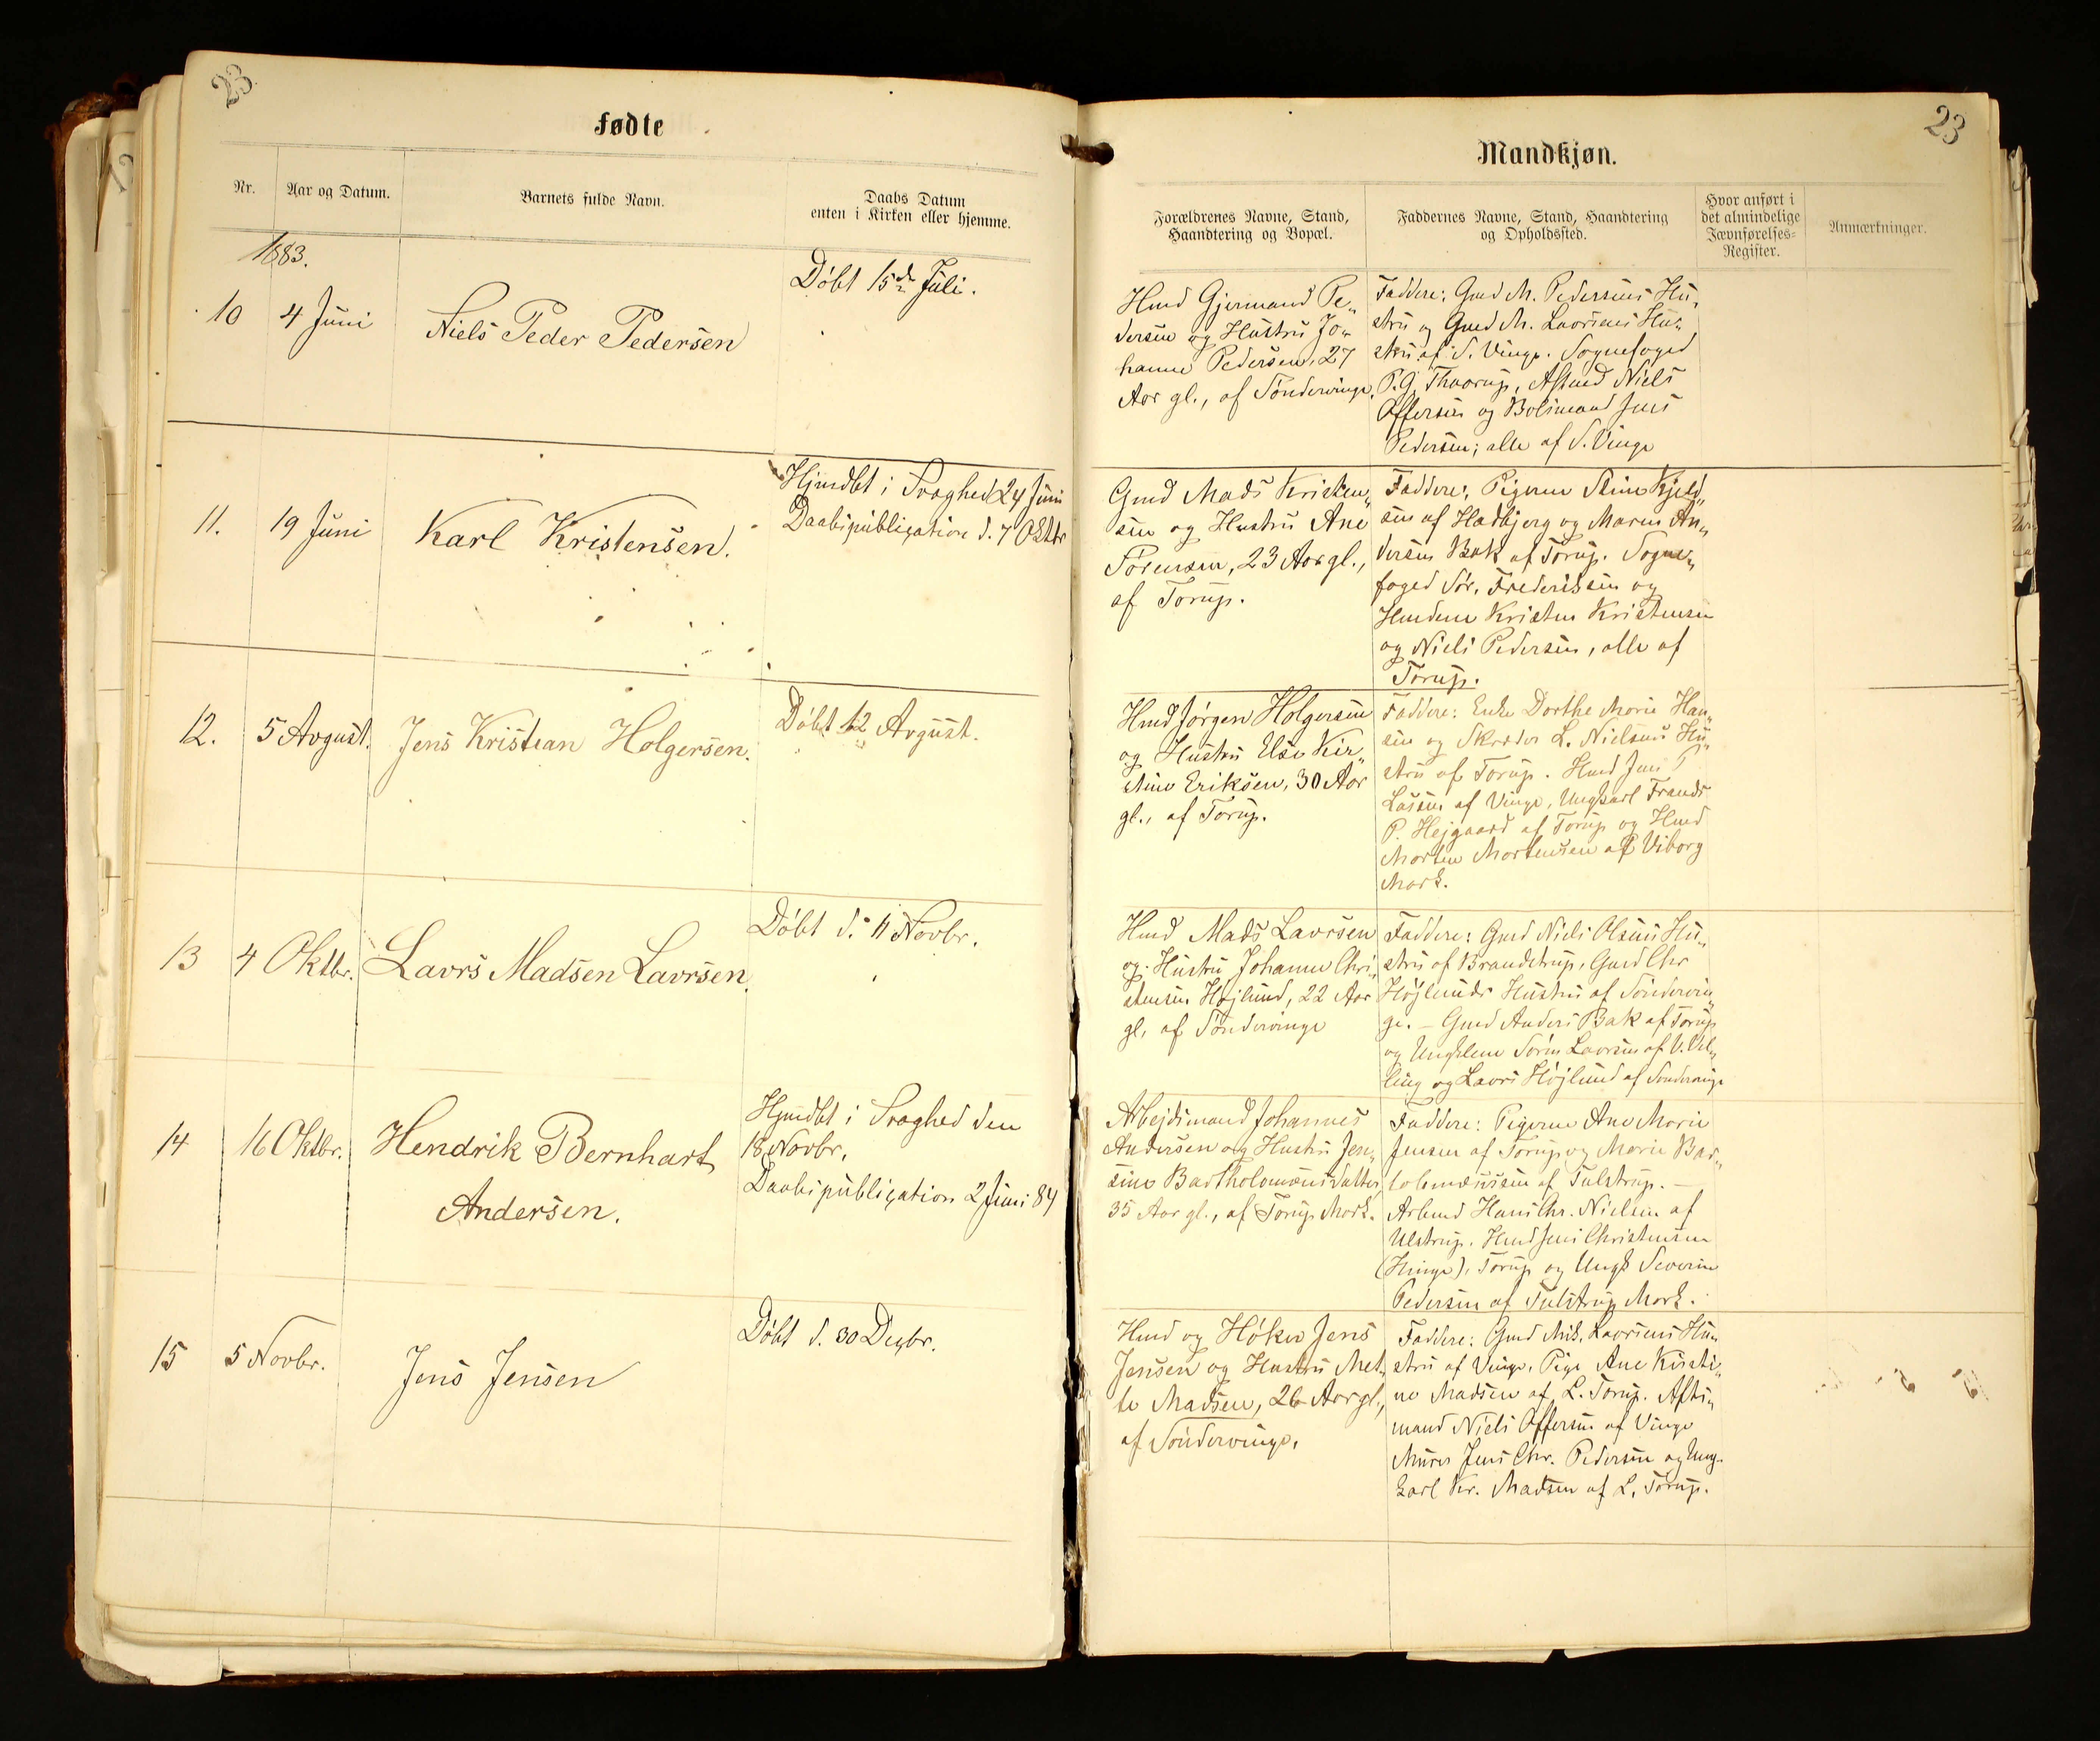 23.
Fødte
Nr.
Aar og Datum.
Barnets fulde Navn.
Daabs Datum
enten i Kirken eller hjemme.
1883.
10
4 Juni
Niels Peder Pedersen
Døbt 15de Juli.
11.
19 Juni
Karl Kristensen.
Hjmdbt i Svaghed 24 Juni
Daabspublication d. 7 Oktbr
12.
5 Avgust.
Jens Kristian Holgersen.
Døbt 12 Avgust.
13
4 Oktbr.
Lavrs Madsen Lavrsen.
Døbt d. 11 Novbr.
14
16 Oktbr.
Hendrik Bernhart
Andersen.
Hjmdbt i Svaghed den
18 Novbr.
Daabspublication 2 Juni 84
15
5 Novbr.
Jens Jensen
Døbt d. 30 Decbr.
23
Mandkjøn.
Forældrenes Navne, Stand,
Haandtering og Bopæl.
Faddernes Navne, Stand, Haandtering
og Opholdssted.
Hvor anført i
det almindelige
Jævnførelses-
Register.
Anmærkninger.
Hmd Gjermand Pe„
dersen og Hustru Jo„
hanne Pedersen, 27
Aar gl., af Søndervinge,
Faddere: Gmd M. Pedersens Hu„
stru og Gmd M. Lavrsens Hu„
stru af S. Vinge. Sognefoged
P. G. Thaarup, Aftmd Niels
Offersen og Bolsmand Jens
Pedersen; alle af S. Vinge
Gmd Mads Kristen„
sen og Hustru Ane
Sørensen, 23 Aar gl.,
af Torup.
Faddere: Pigerne Stine Kjeld„
sen af Hadbjerg og Maren An„
dersen Bak af Torup. Sogne„
foged Sør. Frederiksen og
Hmdene Kristen Kristensen
og Niels Pedersen, alle af
Torup.
Hmd Jørgen Holgersen
og Hustru Else Kir„
stine Eriksen, 30 Aar
gl., af Torup.
Faddere: Enke Dorthe Marie Han„
sen og Skræder L. Nielsens Hu„
stru af Torup. Hmd Jens P
Lassen af Vinge, Ungkarl Frands
P. Hejgaard af Torup og Hmd
Morten Mortensen af Viborg
Mark.
Hmd Mads Lavrsen
og Hustru Johanne Chri„
stensen Højlund, 22 Aar
gl. af Søndervinge
Faddere: Gmd Niels Olsens Hu„
stru af Brandstrup, Gmd Chr
Højlunds Hustru af Søndervin„
ge. — Gmd Anders Bak af Torup
og Ungklene Søren Lavrsen af V. Vel„
ling og Lavrs Højlund af Søndervinge
Arbejdsmand Johannes
Andersen og Hustru Jen„
sine Bartholomæusdatter
35 Aar gl., af Torup Mark.
Faddere: Pigerne Ane Marie
Jensen af Torup og Marie Bar„
tolomæussen af Tulstrup. —
Arbmd Hans Chr. Nielsen af
Ulstrup. Hmd Jens Christensen
(Hinge), Torup og Ungk Severin
Pedersen af Tulstrup Mark.
Hmd og Høker Jens
Jensen og Hustru Met„
te Madsen, 26 Aar gl.,
af Søndervinge.
Faddere: Gmd Mik. Lavrsens Hu„
stru af Vinge, Pige Ane Kirsti„
ne Madsen af L. Torup. Afts„
mand Niels Offersen af Vinge
Murer Jens Chr. Pedersen og Ung„
karl Kr. Madsen af L. Torup.